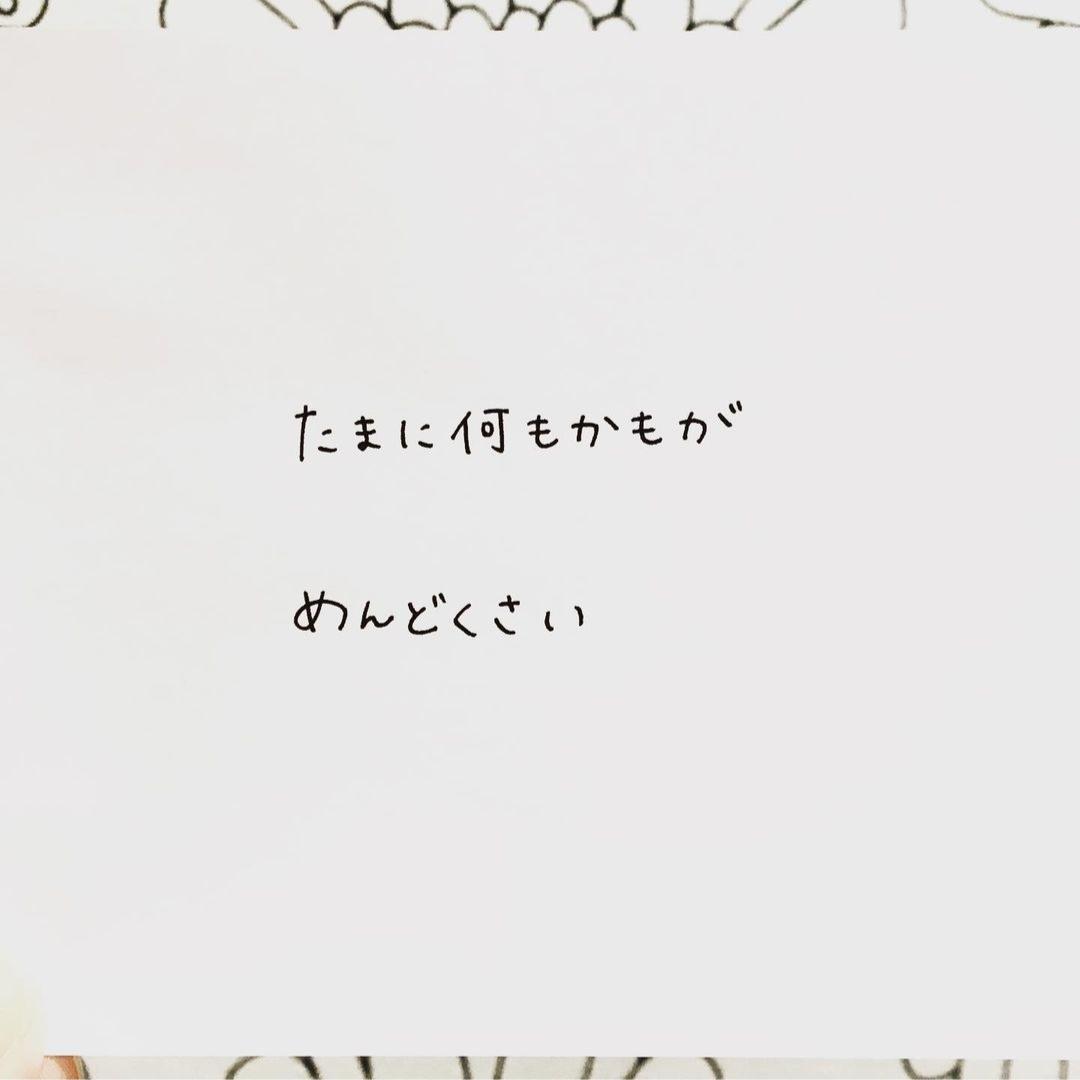 たまに何もかもが
めんどくさい